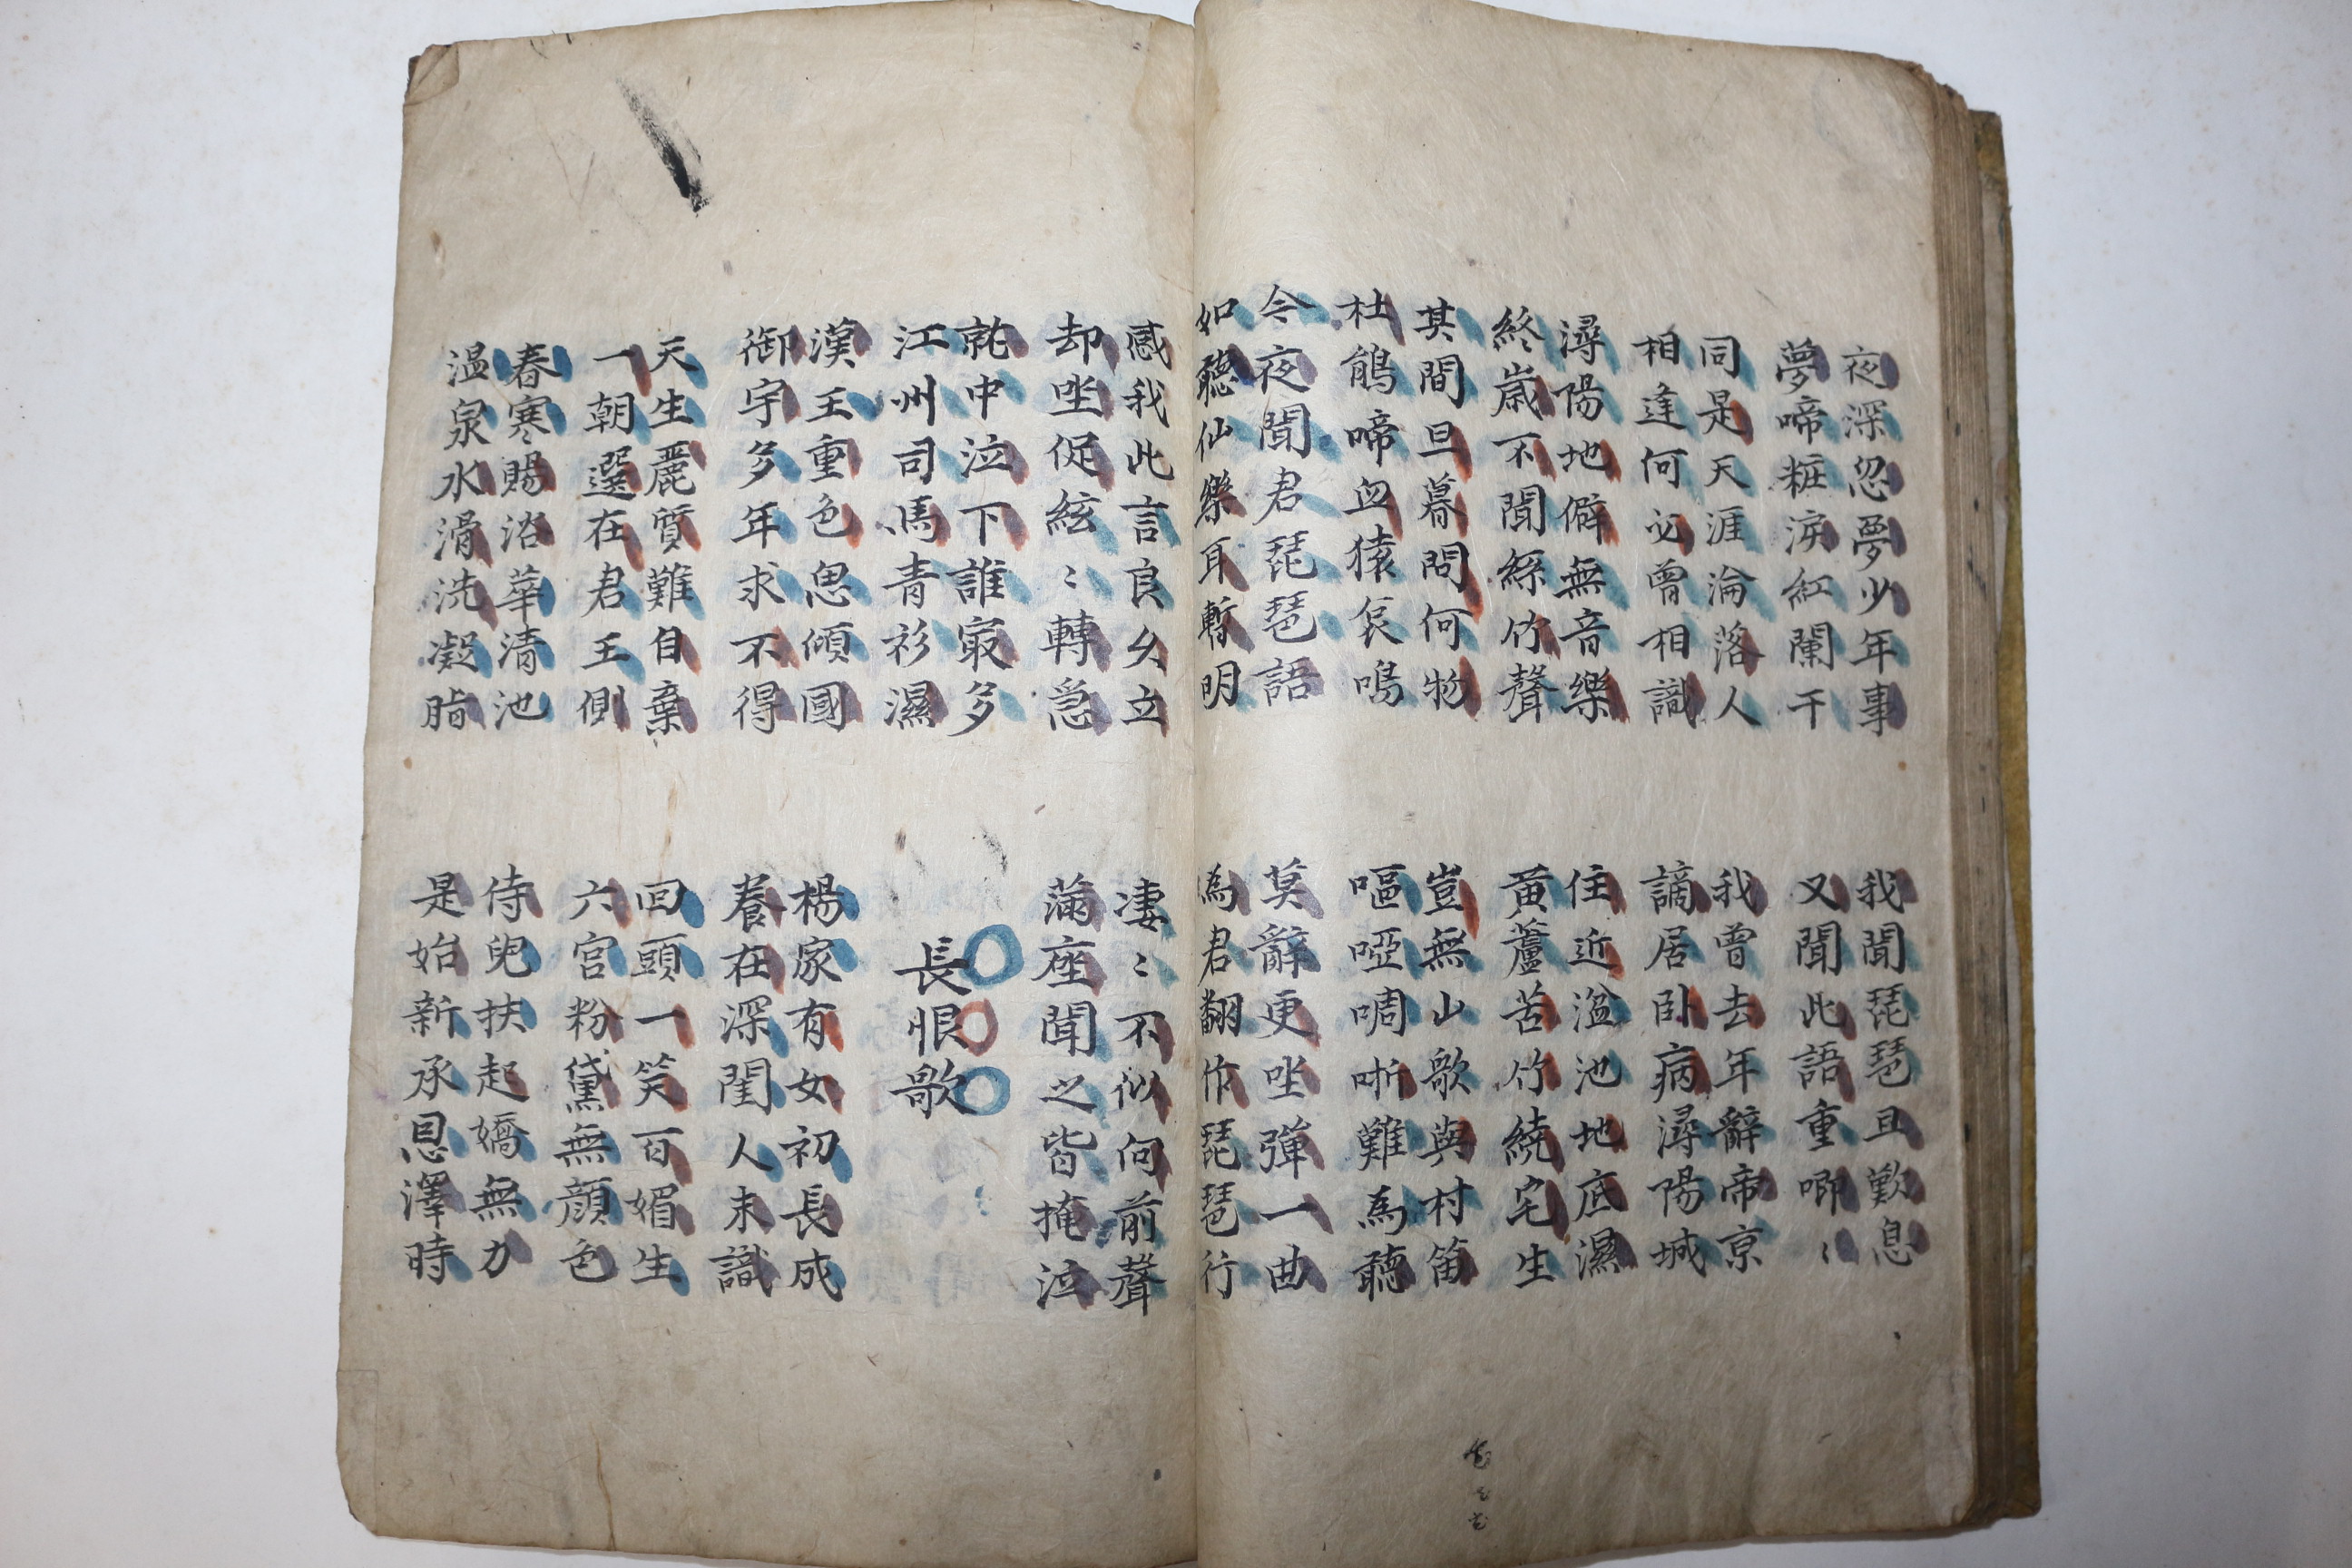 夜深忽夢少年事
夢啼粧淚紅闌干
我聞琵琶且歎息
又聞此語重唧〻
同是天涯淪落人
相逢何必曾相識
我曾去年辭帝京
謫居卧病潯陽城
潯陽地僻無音樂
終歲不聞絲竹聲
住近湓池地底濕
黃蘆苦竹繞宅生
其間旦暮問何物
杜鵑啼血猿哀鳴
豈無山歌與村笛
嘔啞啁唽難為聽
今夜聞君琵琶語
如聽仙樂耳暫明
莫辭更坐彈一曲
為君翻作琵琶行
感我此言良久立
却坐促絃〻轉急
凄〻不似向前聲
滿座聞之皆掩泣
就中泣下誰冣多
江州司馬青衫濕
長恨歌
漢王重色思傾國
御宇多年求不得
楊家有女初長成
養在深閨人未識
天生麗質難自棄
一朝選在君王側
回頭一笑百媚生
六宮粉黛無顔色
春寒賜浴華清池
温泉水滑洗凝脂
侍兒扶起嬌無力
是始新承恩澤時